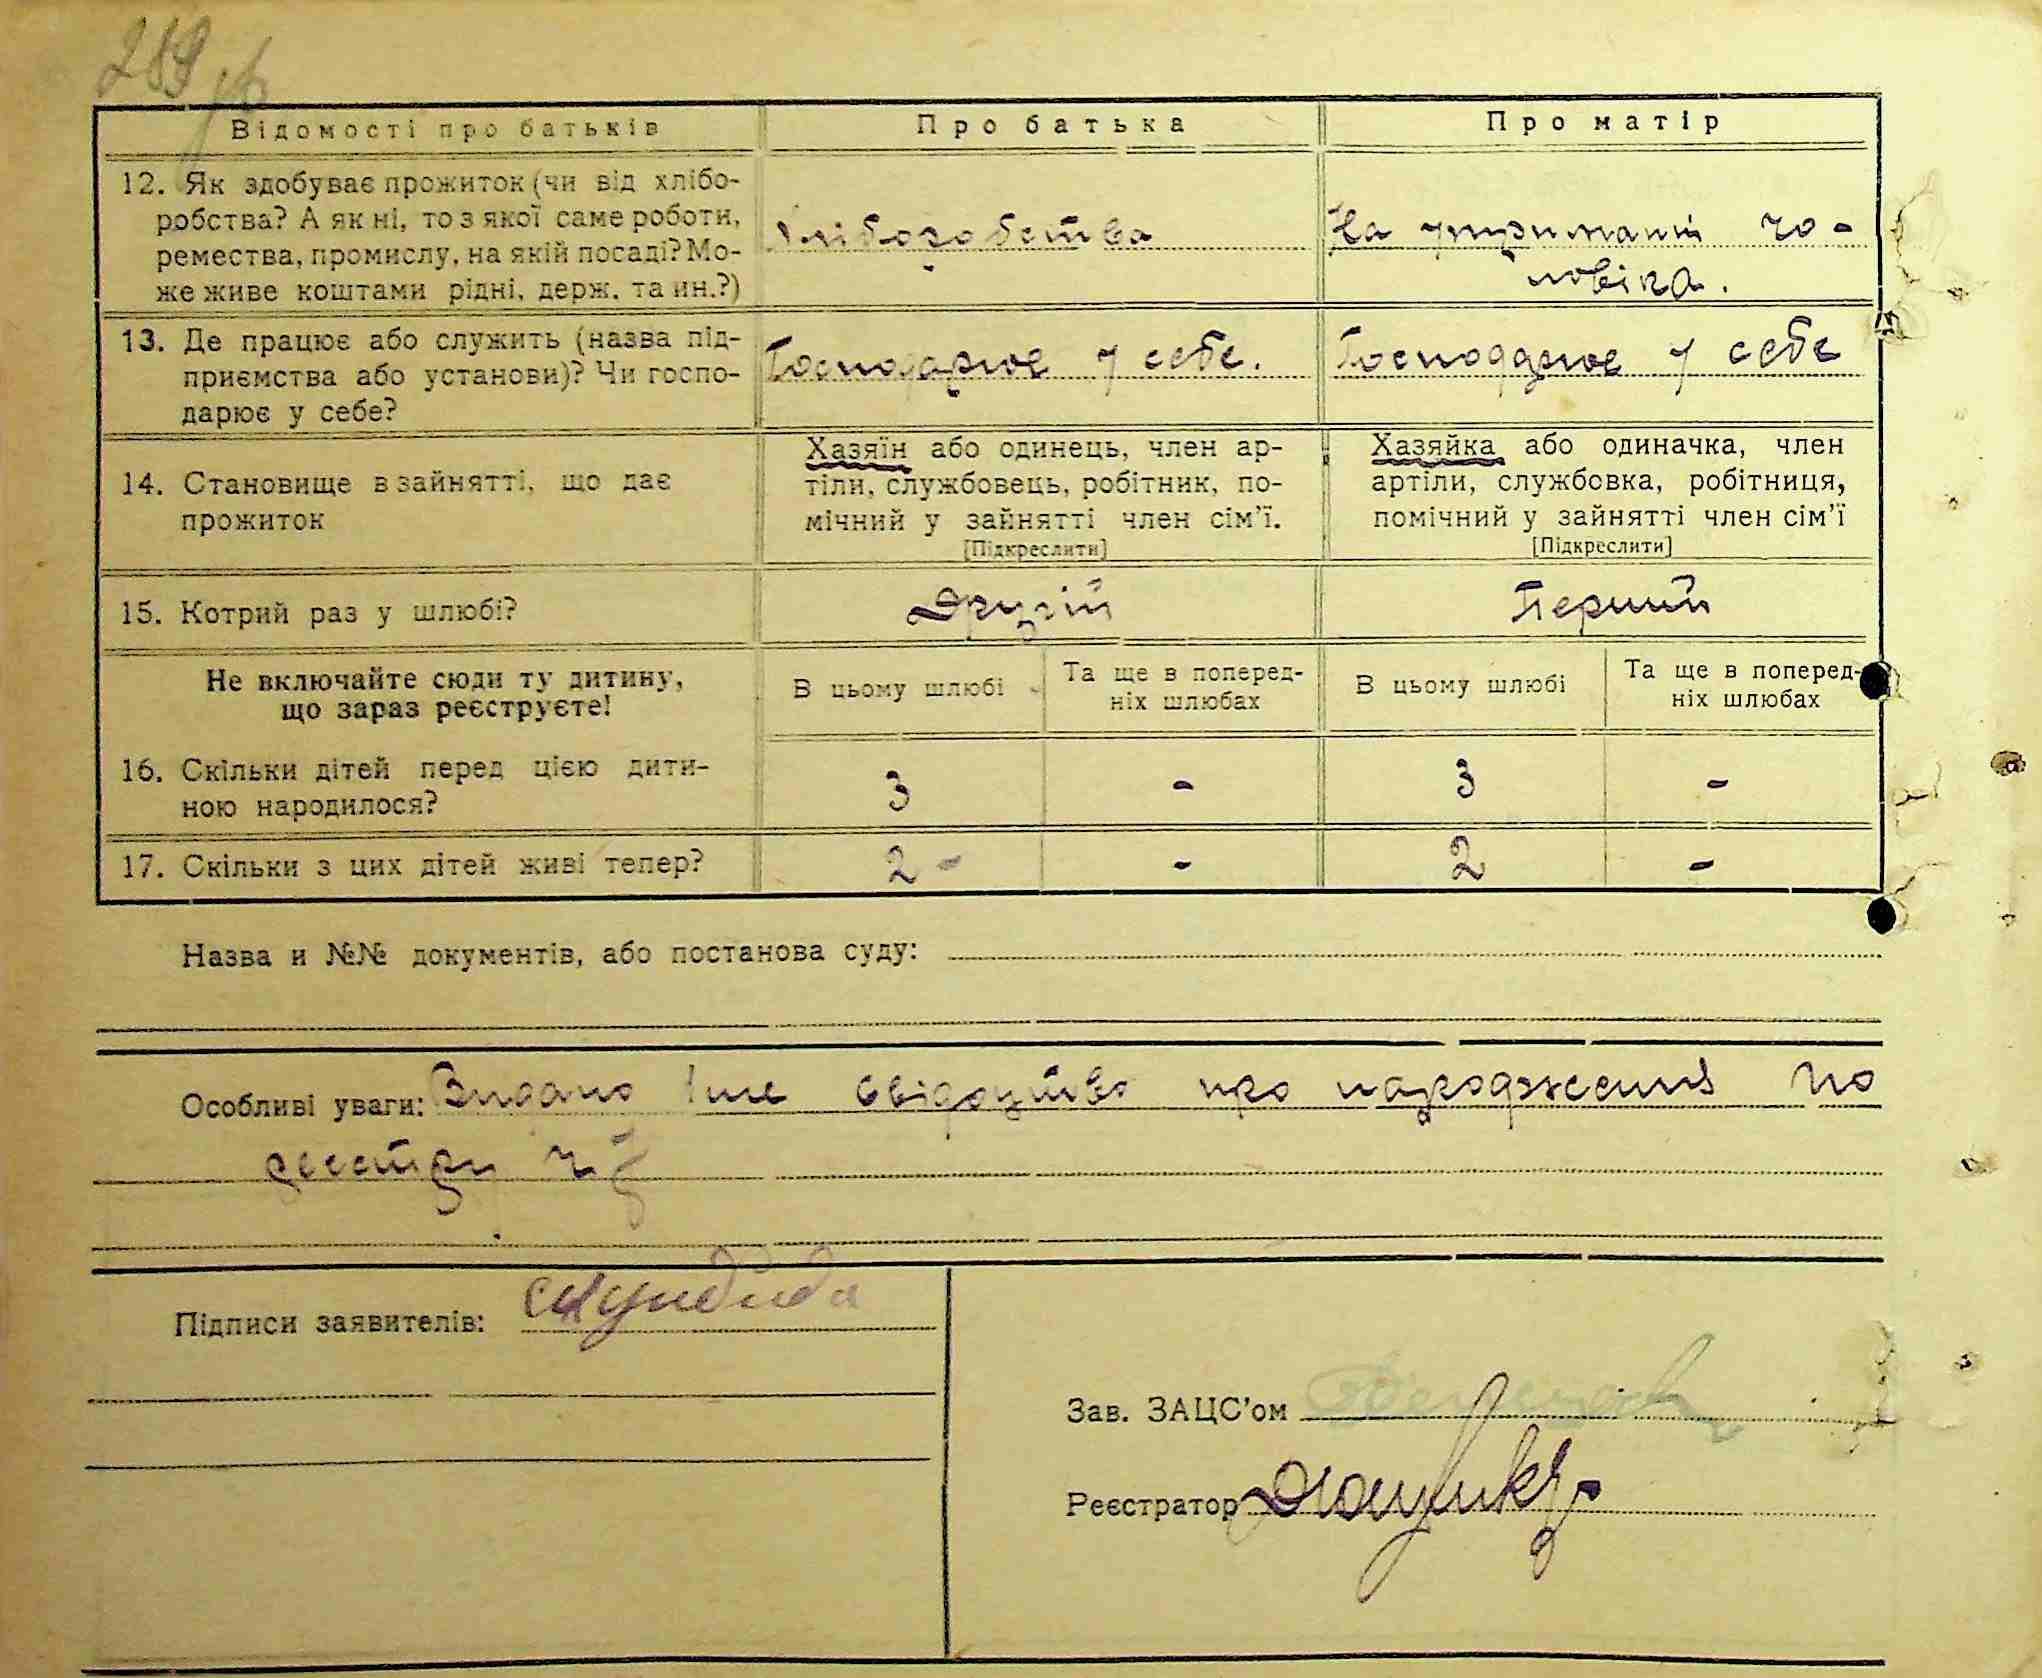 289
Відомості про батьків
Про батька
Про матір
12. Як здобуває прожиток (чи від хлібо-
робства? А як ні, то з якої саме роботи,
ремества, промислу, на якій посаді? Мо-
же живе коштами рідні, держ. та ин.?)
хліборобства
На утриманні чо-
ловіка.
13. Де працює або служить (назва під-
приємства або установи)? Чи госпо-
дарює у себе?
Господарює у себе.
Господарює у себе
14. Становище в зайнятті, що дає
прожиток
Хазяїн або одинець, член ар-
тіли, службовець, робітник, по-
мічний у зайнятті член сім'ї.
[Підкреслити]
Хазяйка або одиначка, член
артіли, службовка, робітниця,
помічний у зайнятті член сім'ї
[Підкреслити]
15. Котрий раз у шлюбі?
Другій
Перший
Не включайте сюди ту дитину,
що зараз реєструєте!
В цьому шлюбі
Та ще в поперед-
ніх шлюбах
В цьому шлюбі
Та ще в поперед-
ніх шлюбах
16. Скільки дітей перед цією дити-
ною народилося?
3 - 3 -
17. Скільки з цих дітей живі тепер?
2 - - 2 -
Назва и №№ документів, або постанова суду:
Особливі уваги: Видано свідоцтво про народження по
реєстру
Підписи заявителів:
Зав. ЗАЦС'ом
Реєстратор